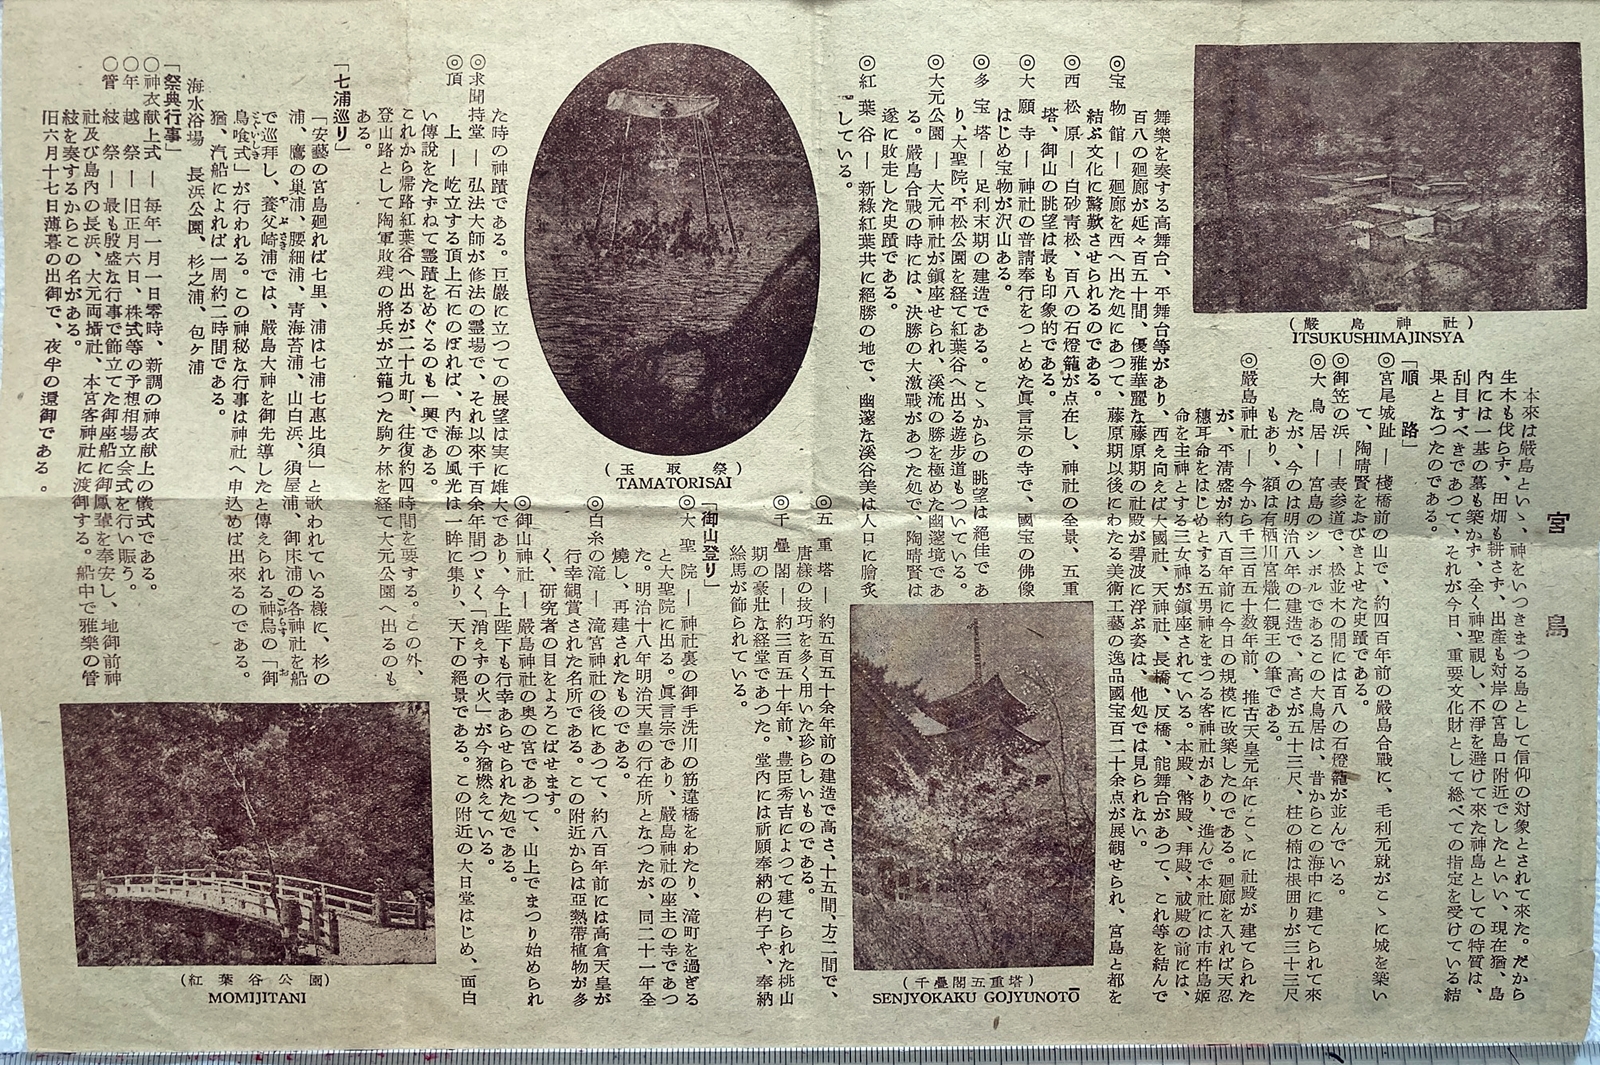 宮島
本來は嚴島といゝ、神をいつきまつる島として信仰の対象とされて來た。だから
生木も伐らず、田畑も耕さず、出産も対岸の宮島口附近でしたといい、現在猶、島
内には一基の墓も築かず、全く神聖視し、不淨を避けて來た神島としての特質は、
刮目すべきであつて、それが今日、重要文化財として総べての指定を受けている結
果となつたのである。
「順路」
◎宮尾城趾 ― 棧橋前の山で、約四百年前の嚴島合戰に、毛利元就がこゝに城を築い
て、陶晴賢をおびきよせた史蹟である。
◎御笠の浜 ― 表参道で、松並木の間には百八の石燈籠が並んでいる。
◎大鳥居 ― 宮島のシンボルであるこの大鳥居は、昔からこの海中に建てられて來
たが、今のは明治八年の建造で、高さが五十三尺、柱の楠は根囲りが三十三尺
もあり、額は有栖川宮熾仁親王の筆である。
◎嚴島神社 ― 今から千三百五十数年前、推古天皇元年にこゝに社殿が建てられた
が、平清盛が約八百年前に今日の規模に改築したのである。廻廊を入れば天忍
穗耳命をはじめとする五男神をまつる客神社があり、進んで本社には市杵島姫
命を主神とする三女神が鎮座されている。本殿、幣殿、拜殿、祓殿の前には、
舞樂を奏する高舞台、平舞台等があり、西え向えば大國社、天神社、長橋、反橋、能舞台があつて、これ等を結んで
百八の廻廊が延々百五十間、優雅華麗な藤原期の社殿が碧波に浮ぶ姿は、他処では見られない。
◎宝物館 ― 廻廊を西へ出た処にあつて、藤原期以後にわたる美術工藝の逸品國宝百二十余点が展観せられ、宮島と都を
結ぶ文化に驚歎させられるのである。
◎西松原 ― 白砂青松、百八の石燈籠が点在し、神社の全景、五重
塔、御山の眺望は最も印象的である。
◎大願寺 ― 神社の普請奉行をつとめた眞言宗の寺で、國宝の佛像
はじめ宝物が沢山ある。
◎多宝塔 ― 足利末期の建造である。こゝからの眺望は絶佳であ
り、大聖院、平松公園を経て紅葉谷へ出る遊歩道もついている。
◎大元公園 ― 大元神社が鎮座せられ、溪流の勝を極めた幽邃境であ
る。嚴島合戰の時には、決勝の大激戰があつた処で、陶晴賢は
遂に敗走した史蹟である。
◎紅葉谷 ― 新綠紅葉共に絶勝の地で、幽邃な溪谷美は人口に膾炙
している。
◎五重塔 ― 約五百五十余年前の建造で高さ、十五間、方二間で、
唐様の技巧を多く用いた珍らしいものである。
◎千疊閣 ― 約三百五十年前、豊臣秀吉によつて建てられた桃山
期の豪壯な経堂であつた。堂内には祈願奉納の杓子や、奉納
絵馬が飾られている。
「御山登り」
◎大聖院 ― 神社裏の御手洗川の筋違橋をわたり、滝町を過ぎる
と大聖院に出る。眞言宗であり、嚴島神社の座主の寺であつ
た。明治十八年明治天皇の行在所となつたが、同二十一年全
燒し、再建されたものである。
◎白糸の滝 ― 滝宮神社の後にあつて、約八百年前には高倉天皇が
行幸観賞された名所である。この附近からは亞熱帶植物が多
く、研究者の目をよろこばせます。
◎御山神社 ― 嚴島神社の奥の宮であつて、山上でまつり始められ
た時の神蹟である。巨巖に立つての展望は実に雄大であり、今上陛下も行幸あらせられた処である。
◎求聞持堂 ― 弘法大師が修法の靈場で、それ以來千百余年間つゞく「消えずの火」が今猶燃えている。
◎頂上 ― 屹立する頂上石にのぼれば、内海の風光は一眸に集り、天下の絶景である。この附近の大日堂はじめ、面白
い傳說をたずねて靈蹟をめぐるのも一興である。
これから帰路紅葉谷へ出るが二十九町、往復約四時間を要する。この外、
登山路として陶軍敗残の將兵が立籠つた駒ヶ林を経て大元公園へ出るのも
ある。
「七浦巡り」
「安藝の宮島廻れば七里、浦は七浦七惠比須」と歌われている様に、杉の
浦、鷹の巣浦、腰細浦、青海苔浦、山白浜、須屋浦、御床浦の各神社を船
で巡拜し、養父崎浦では、嚴島大神を御先導したと傳えられる神烏の「御
鳥喰式」が行われる。この神秘な行事は神社へ申込めば出來るのである。
猶、汽船によれば一周約二時間である。
海水浴場 長浜公園、杉之浦、包ヶ浦
「祭典行事」
○神衣献上式 ― 毎年一月一日零時、新調の神衣献上の儀式である。
○年越祭 ― 旧正月六日、株式等の予想相場立会式を行い賑う。
○管絃祭 ― 最も殷盛な行事で飾立てた御座船に御鳳輦を奉安し、地御前神
社及び島内の長浜、大元両攝社、本宮客神社に渡御する。船中で雅樂の管
絃を奏するからこの名がある。
旧六月十七日薄暮の出御で、夜半の還御である。
(嚴島神社)
ITSUKUSHIMAJINSYA
(玉取祭)
TAMATORISAI
(千疊閣五重塔)
SENJYOKAKU GOJYUNOTŌ
(紅葉谷公園)
MOMIJITANI